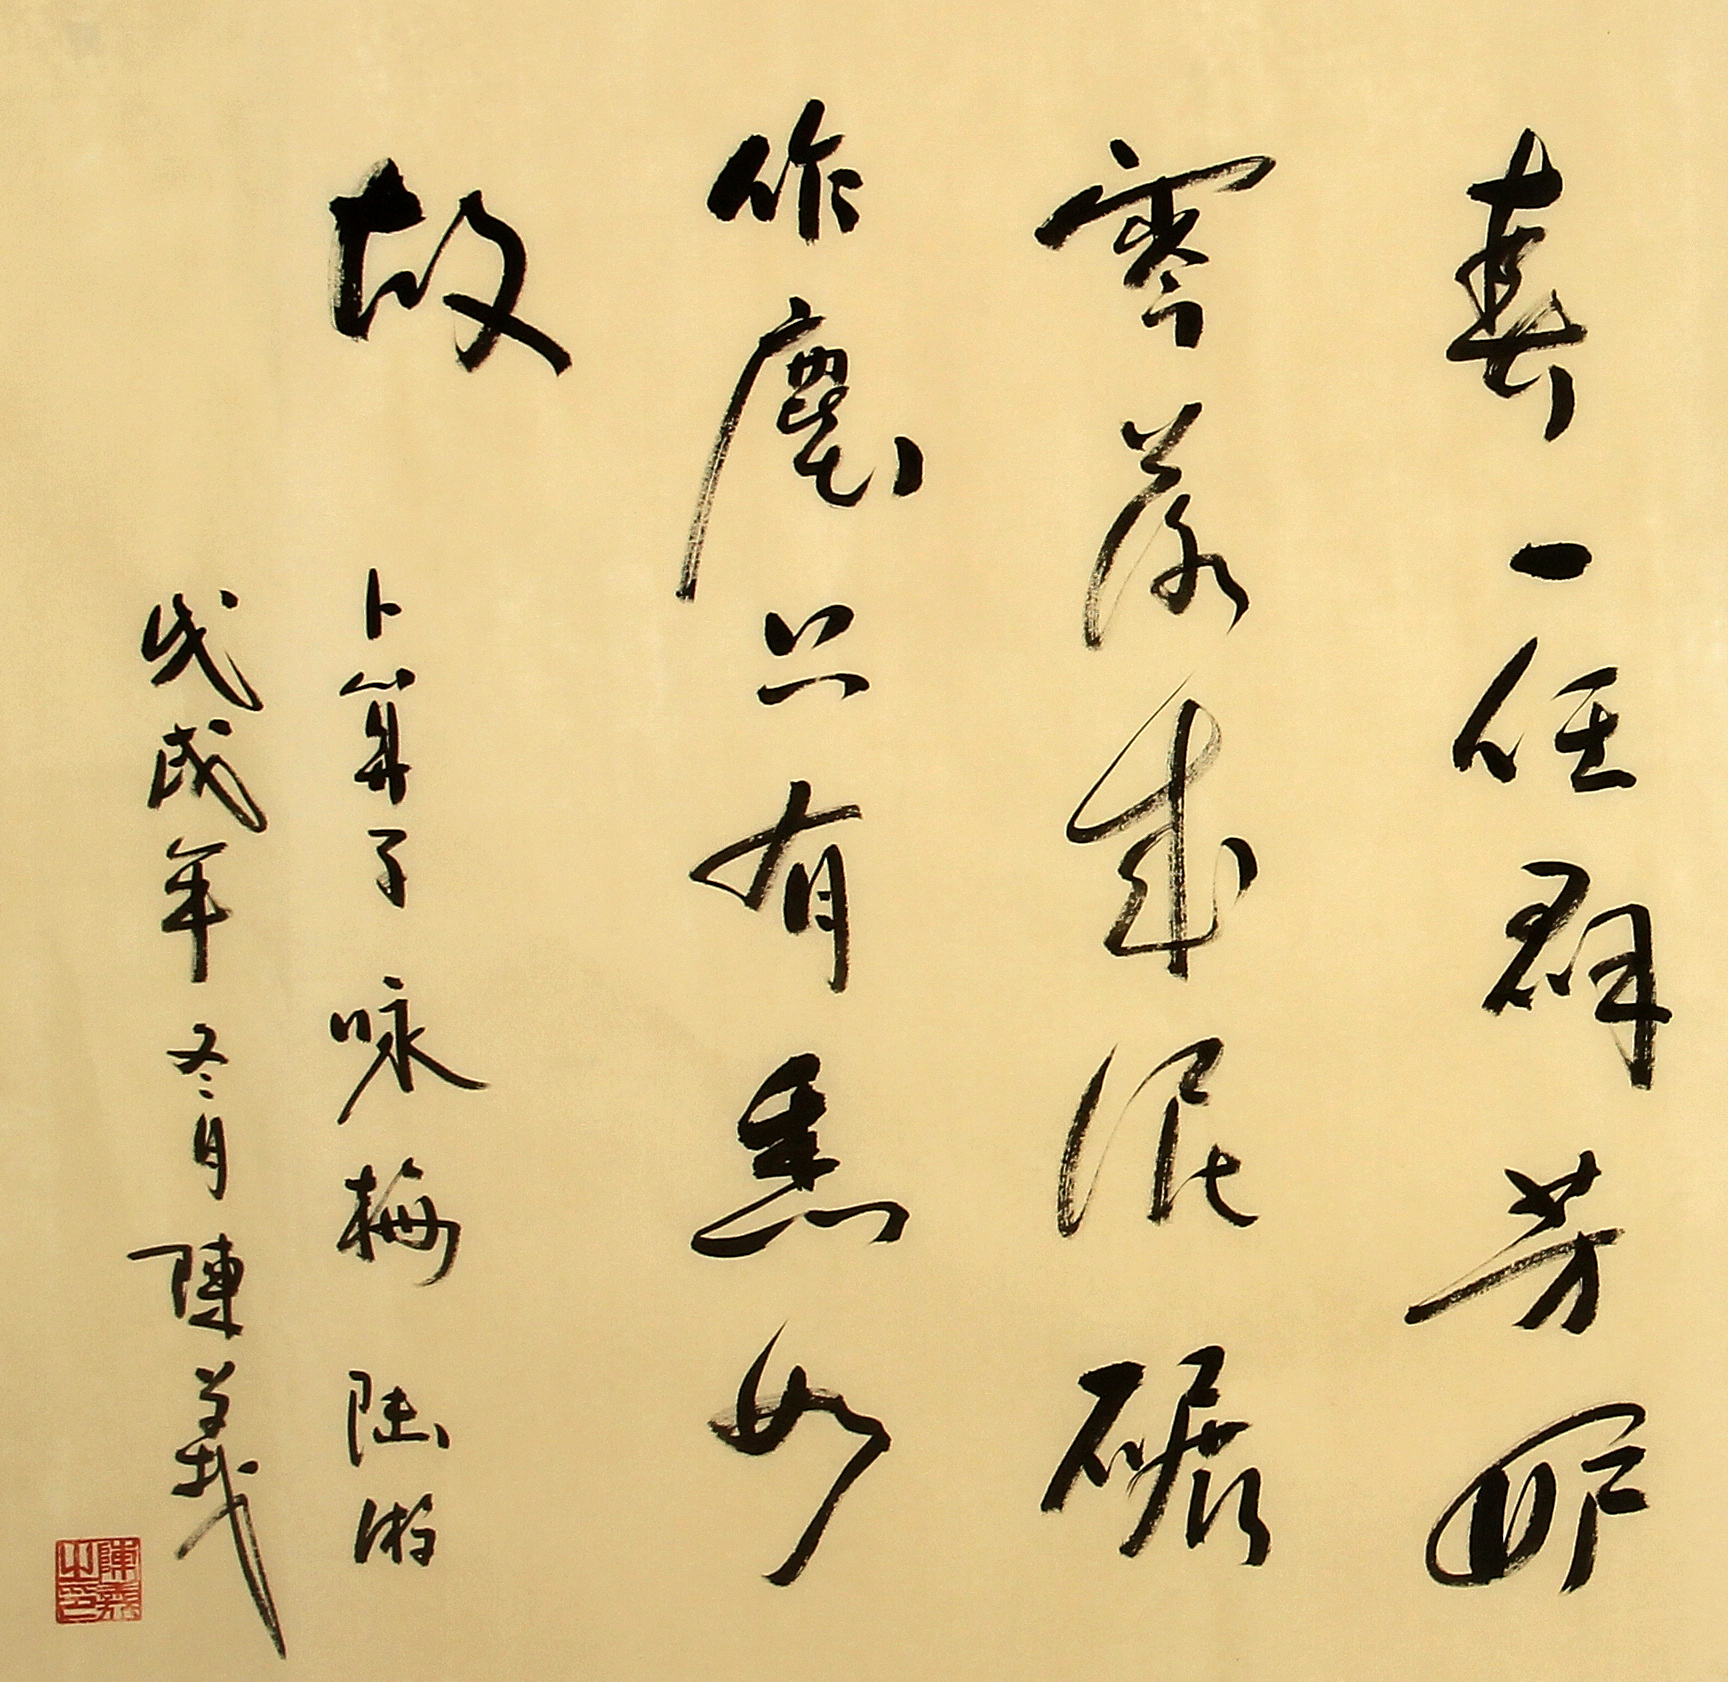 春一任群芳妒
零落成泥碾
作塵只有香如
故
卜算子 咏梅 陸游
戊戌年冬月陳義
陳義之印